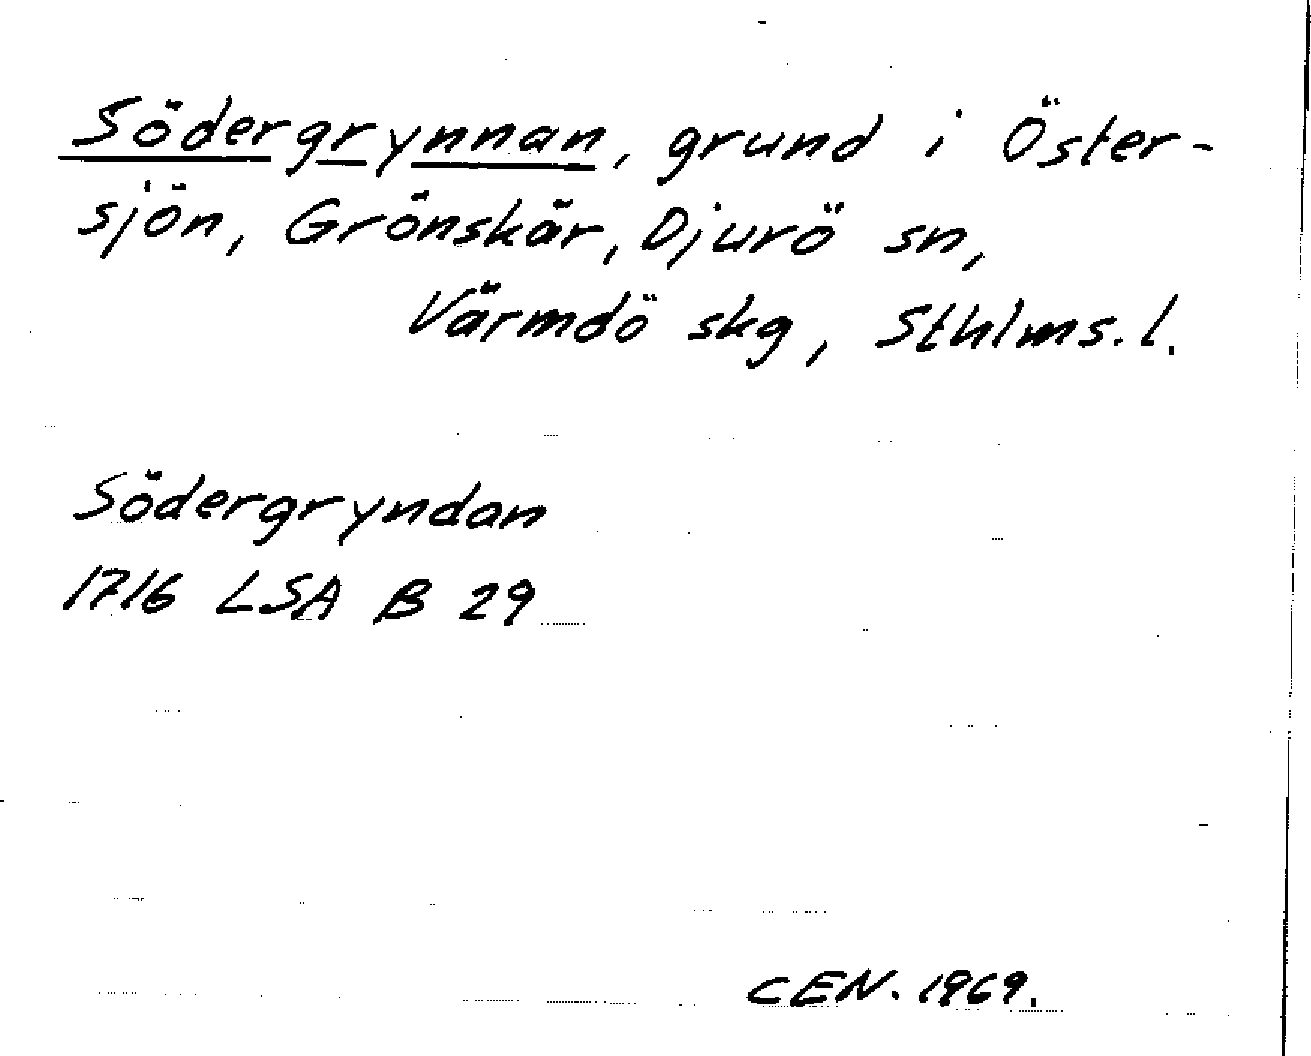 Södergrynnan, grund i Öster-
sjön, Grönskär, Djurö sn,
Värmdö skg, Sthlms. l.
Södergryndan
1716 LSA B 29
CEN. 1969.